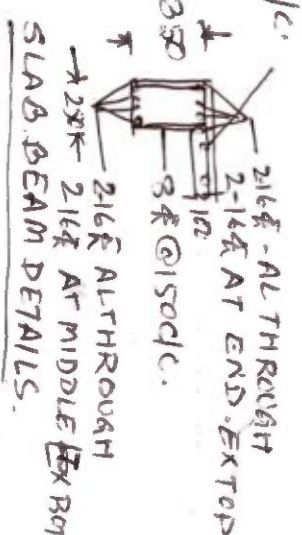 /C.
2-16Φ - ALTHROUGH
2-16Φ AT END. EXTOP
8Φ @150C/C.
350
216Φ ALTHROUGH
216Φ AT MIDDLE EXBOT
SLAB BEAM DETAILS.